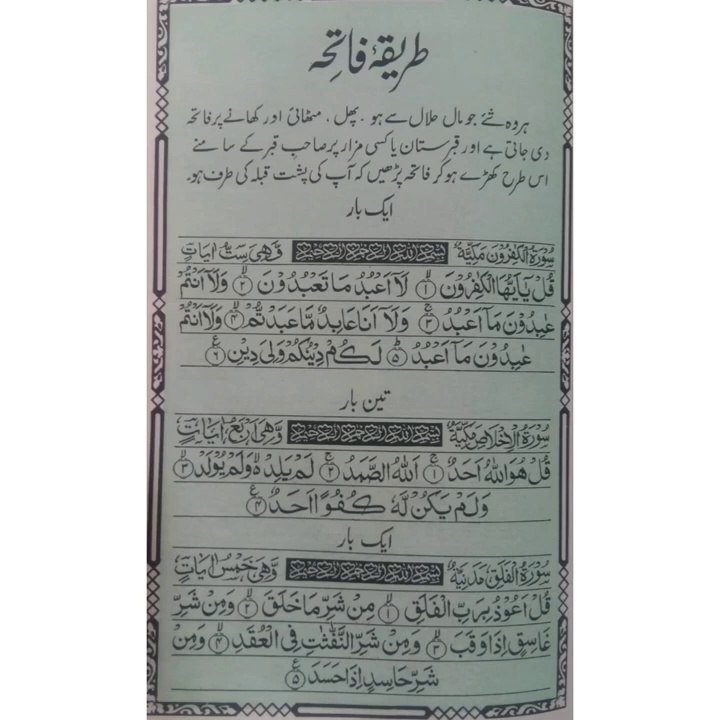 طریقۂ فاتحہ
ہر وہ شئے جو مال حلال سے ہو ۔ پھل ، مٹھائی اور کھانے پر فاتحہ
دی جاتی ہے اور قبرستان یا کسی مزار پر صاحبِ قبر کے سامنے
اس طرح کھڑے ہو کر فاتحہ پڑھیں کہ آپ کی پشت قبلہ کی طرف ہو۔
ایک بار
سُوْرَۃُ الْکٰفِرُوْنَ مَکِّیَّۃٌ بِسْمِ اللّٰہِ الرَّحْمٰنِ الرَّحِیْمِ وَھِیَ سِتُّ اٰیَاتٍ
قُلْ یٰۤاَیُّہَا الْکٰفِرُوْنَ ﴿۱﴾ لَاۤ اَعْبُدُ مَا تَعْبُدُوْنَ ﴿۲﴾ وَلَاۤ اَنْتُمْ
عٰبِدُوْنَ مَاۤ اَعْبُدُ ﴿۳﴾ وَلَاۤ اَنَا عَابِدٌ مَّا عَبَدْتُّمْ ﴿۴﴾ وَلَاۤ اَنْتُمْ
عٰبِدُوْنَ مَاۤ اَعْبُدُ ﴿۵﴾ لَکُمْ دِیْنُکُمْ وَلِیَ دِیْنِ ﴿۶﴾
تین بار
سُوْرَۃُ الْاِخْلَاصِ مَکِّیَّۃٌ بِسْمِ اللّٰہِ الرَّحْمٰنِ الرَّحِیْمِ وَھِیَ اَرْبَعُ اٰیَاتٍ
قُلْ ہُوَ اللّٰہُ اَحَدٌ ﴿۱﴾ اَللّٰہُ الصَّمَدُ ﴿۲﴾ لَمْ یَلِدْ وَلَمْ یُوْلَدْ ﴿۳﴾
وَلَمْ یَکُنْ لَّہٗ کُفُوًا اَحَدٌ ﴿۴﴾
ایک بار
سُوْرَۃُ الْفَلَقِ مَدَنِیَّۃٌ بِسْمِ اللّٰہِ الرَّحْمٰنِ الرَّحِیْمِ وَھِیَ خَمْسُ اٰیَاتٍ
قُلْ اَعُوْذُ بِرَبِّ الْفَلَقِ ﴿۱﴾ مِنْ شَرِّ مَا خَلَقَ ﴿۲﴾ وَمِنْ شَرِّ
غَاسِقٍ اِذَا وَقَبَ ﴿۳﴾ وَمِنْ شَرِّ النَّفّٰثٰتِ فِی الْعُقَدِ ﴿۴﴾ وَمِنْ
شَرِّ حَاسِدٍ اِذَا حَسَدَ ﴿۵﴾